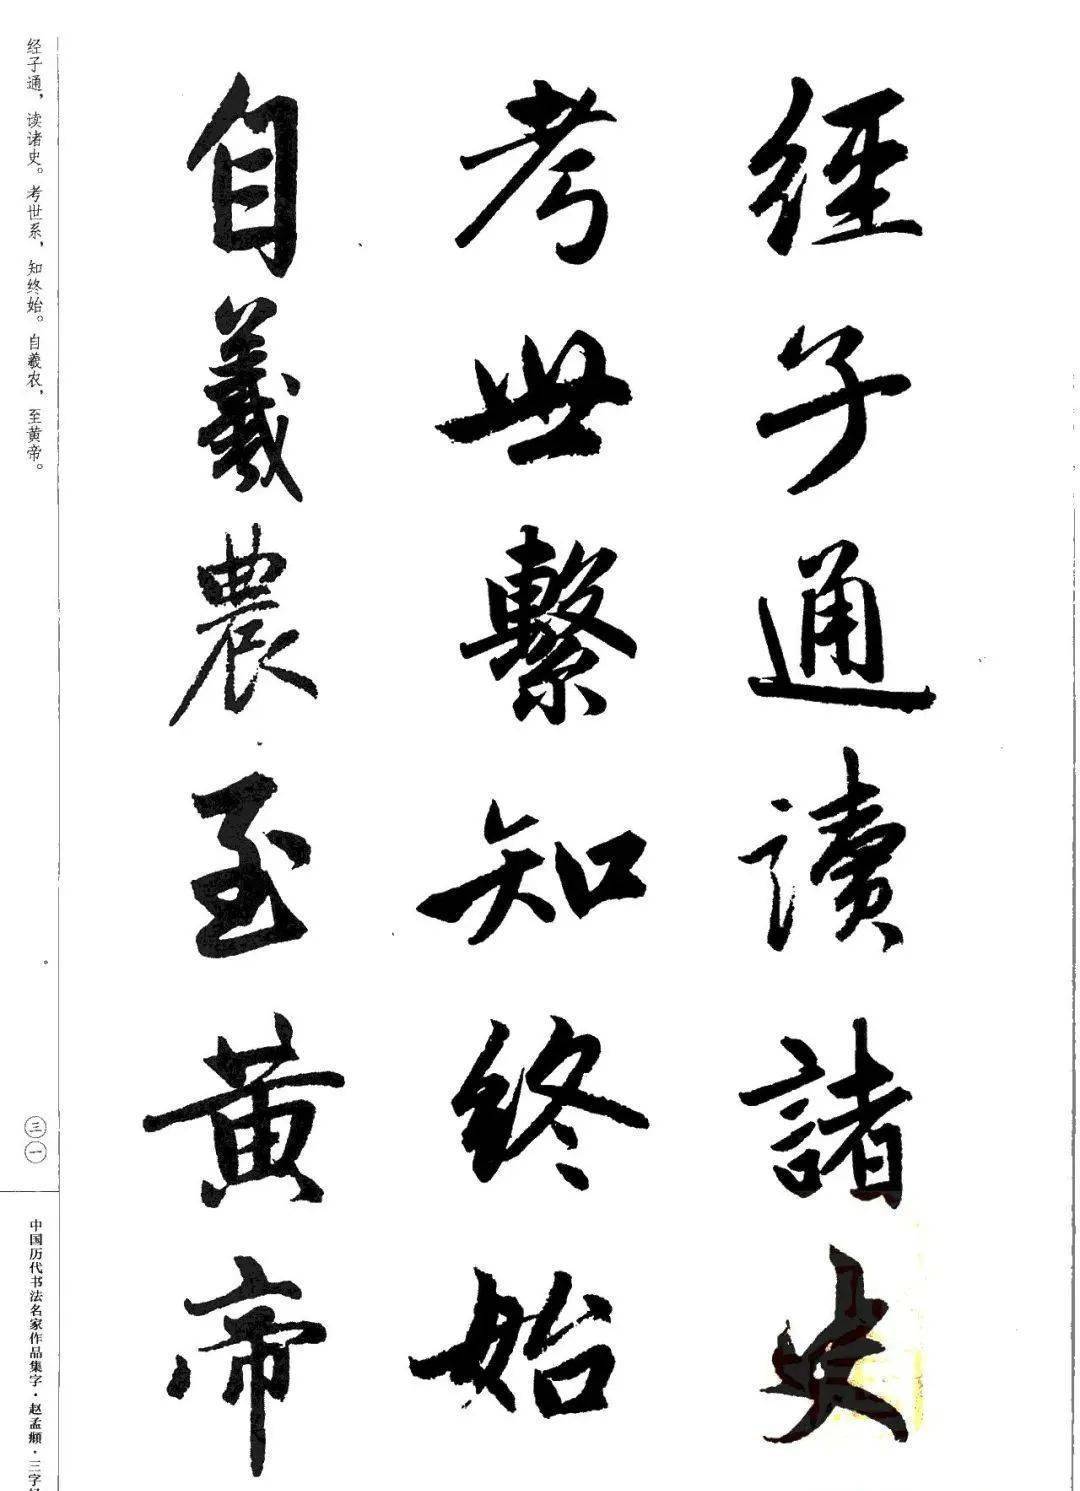 經子通讀諸史
考世繫知終始
自羲農至黄帝
经子通，读诸史。考世系，知终始。自羲农，至黄帝。
三一
中国历代书法名家作品集字·赵孟頫·三字